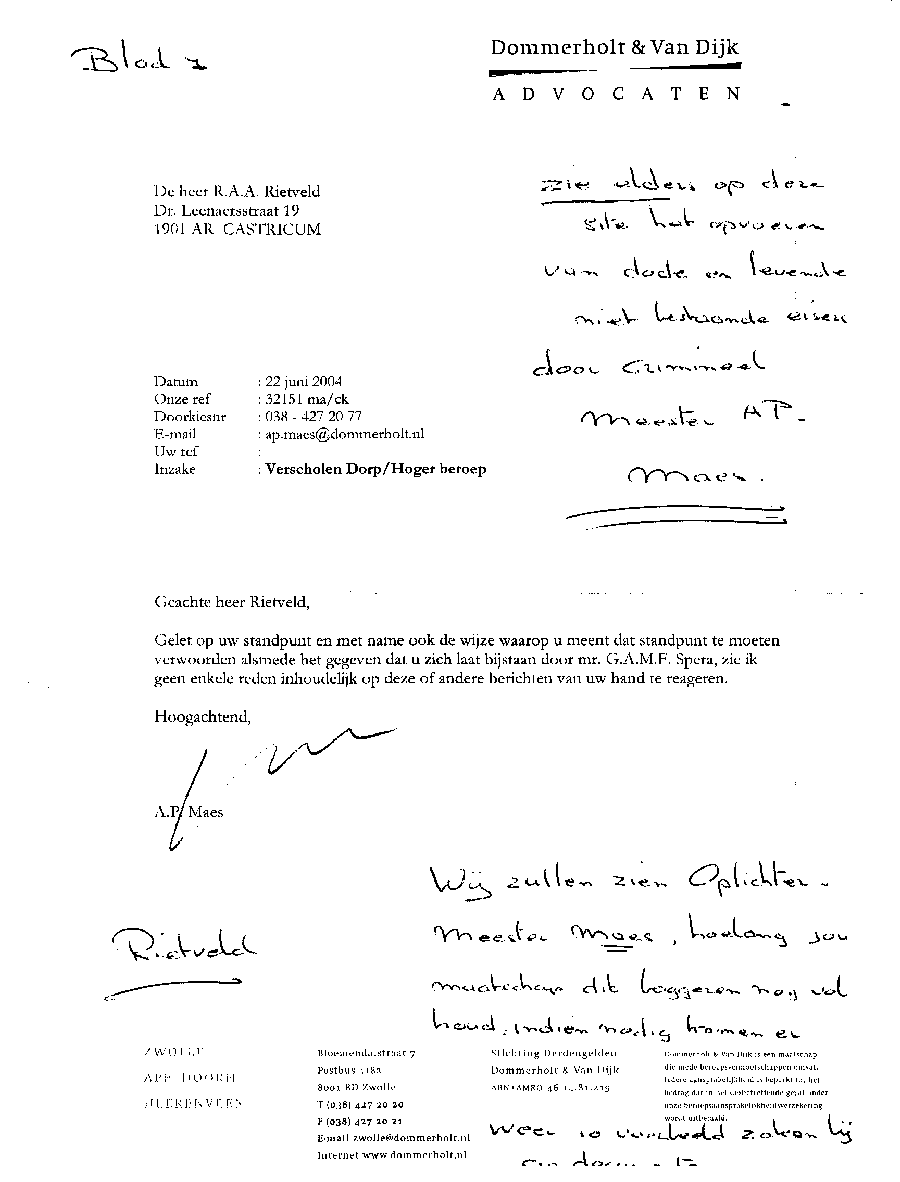 Blad 1
Dommerholt & Van Dijk
ADVOCATEN
De heer R.A.A. Rietveld
Dr. Leenaersstraat 19
1901 AR CASTRICUM
zie elders op deze
site het opvoeren
van dode en levende
niet bestaande eisen
door Crimineel
Meester AP.
Maes.
Datum : 22 juni 2004
Onze ref : 32151 ma/ck
Doorkiesnr : 038 - 427 20 77
E-mail : ap.maes@dommerholt.nl
Uw ref :
Inzake : Verscholen Dorp/Hoger beroep
Geachte heer Rietveld,
Gelet op uw standpunt en met name ook de wijze waarop u meent dat standpunt te moeten
verwoorden alsmede het gegeven dat u zich laat bijstaan door mr. G.A.M.F. Spera, zie ik
geen enkele reden inhoudelijk op deze of andere berichten van uw hand te reageren.
Hoogachtend,
A.P. Maes
Wij zullen zien Oplichter -
Meester Maes, hoelang jou
maatschap dit baggeren nog vol
houd, indien nodig komen er
Rietveld
ZWOLLE
APELDOORN
HEERENVEEN
Bloemendalstraat 7
Postbus
8001 BD Zwolle
T (038) 427 20 20
F (038) 427 20 21
E-mail zwolle@dommerholt.nl
Internet www.dommerholt.nl
Stichting Derdengelden
Dommerholt & Van Dijk
ABN AMRO
Dommerholt & Van Dijk is een maatschap
die mede beroepsvennootschappen omvat.
Iedere aansprakelijkheid is beperkt tot het
bedrag dat in het desbetreffende geval onder
onze beroepsaansprakelijkheidverzekering
wordt uitbetaald.
Weer 10 zaken bij